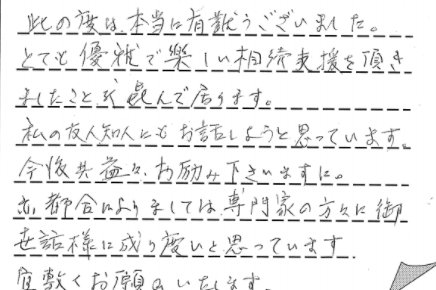 此の度は、本当に有難うございました。
とても優雅で楽しい相続支援を頂き
ましたこと んで居ります。
私の友人知人にもお話しようと思っています。
今後共益々、お励み下さいますに。
亦、都合によりましては、専門家の方々に御
世話様に成り度いと思っています.
宜敷くお願いいたします。